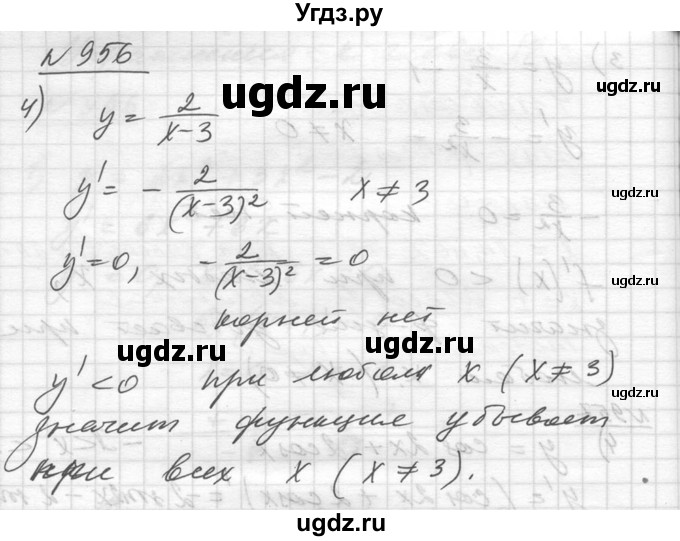 Угдз.ру
N 956
4) y = 2/(x-3)
y' = - 2/(x-3)² x ≠ 3
y' = 0, - 2/(x-3)² = 0
корней нет
y' < 0 при любом x (x ≠ 3)
значит функция убывает
при всех x (x ≠ 3).
ugdz.ru
ugdz.ru
ugdz.ru
ugdz.ru
ugdz.ru
ugdz.ru
ugdz.ru
ugdz.ru
ugdz.ru
ugdz.ru